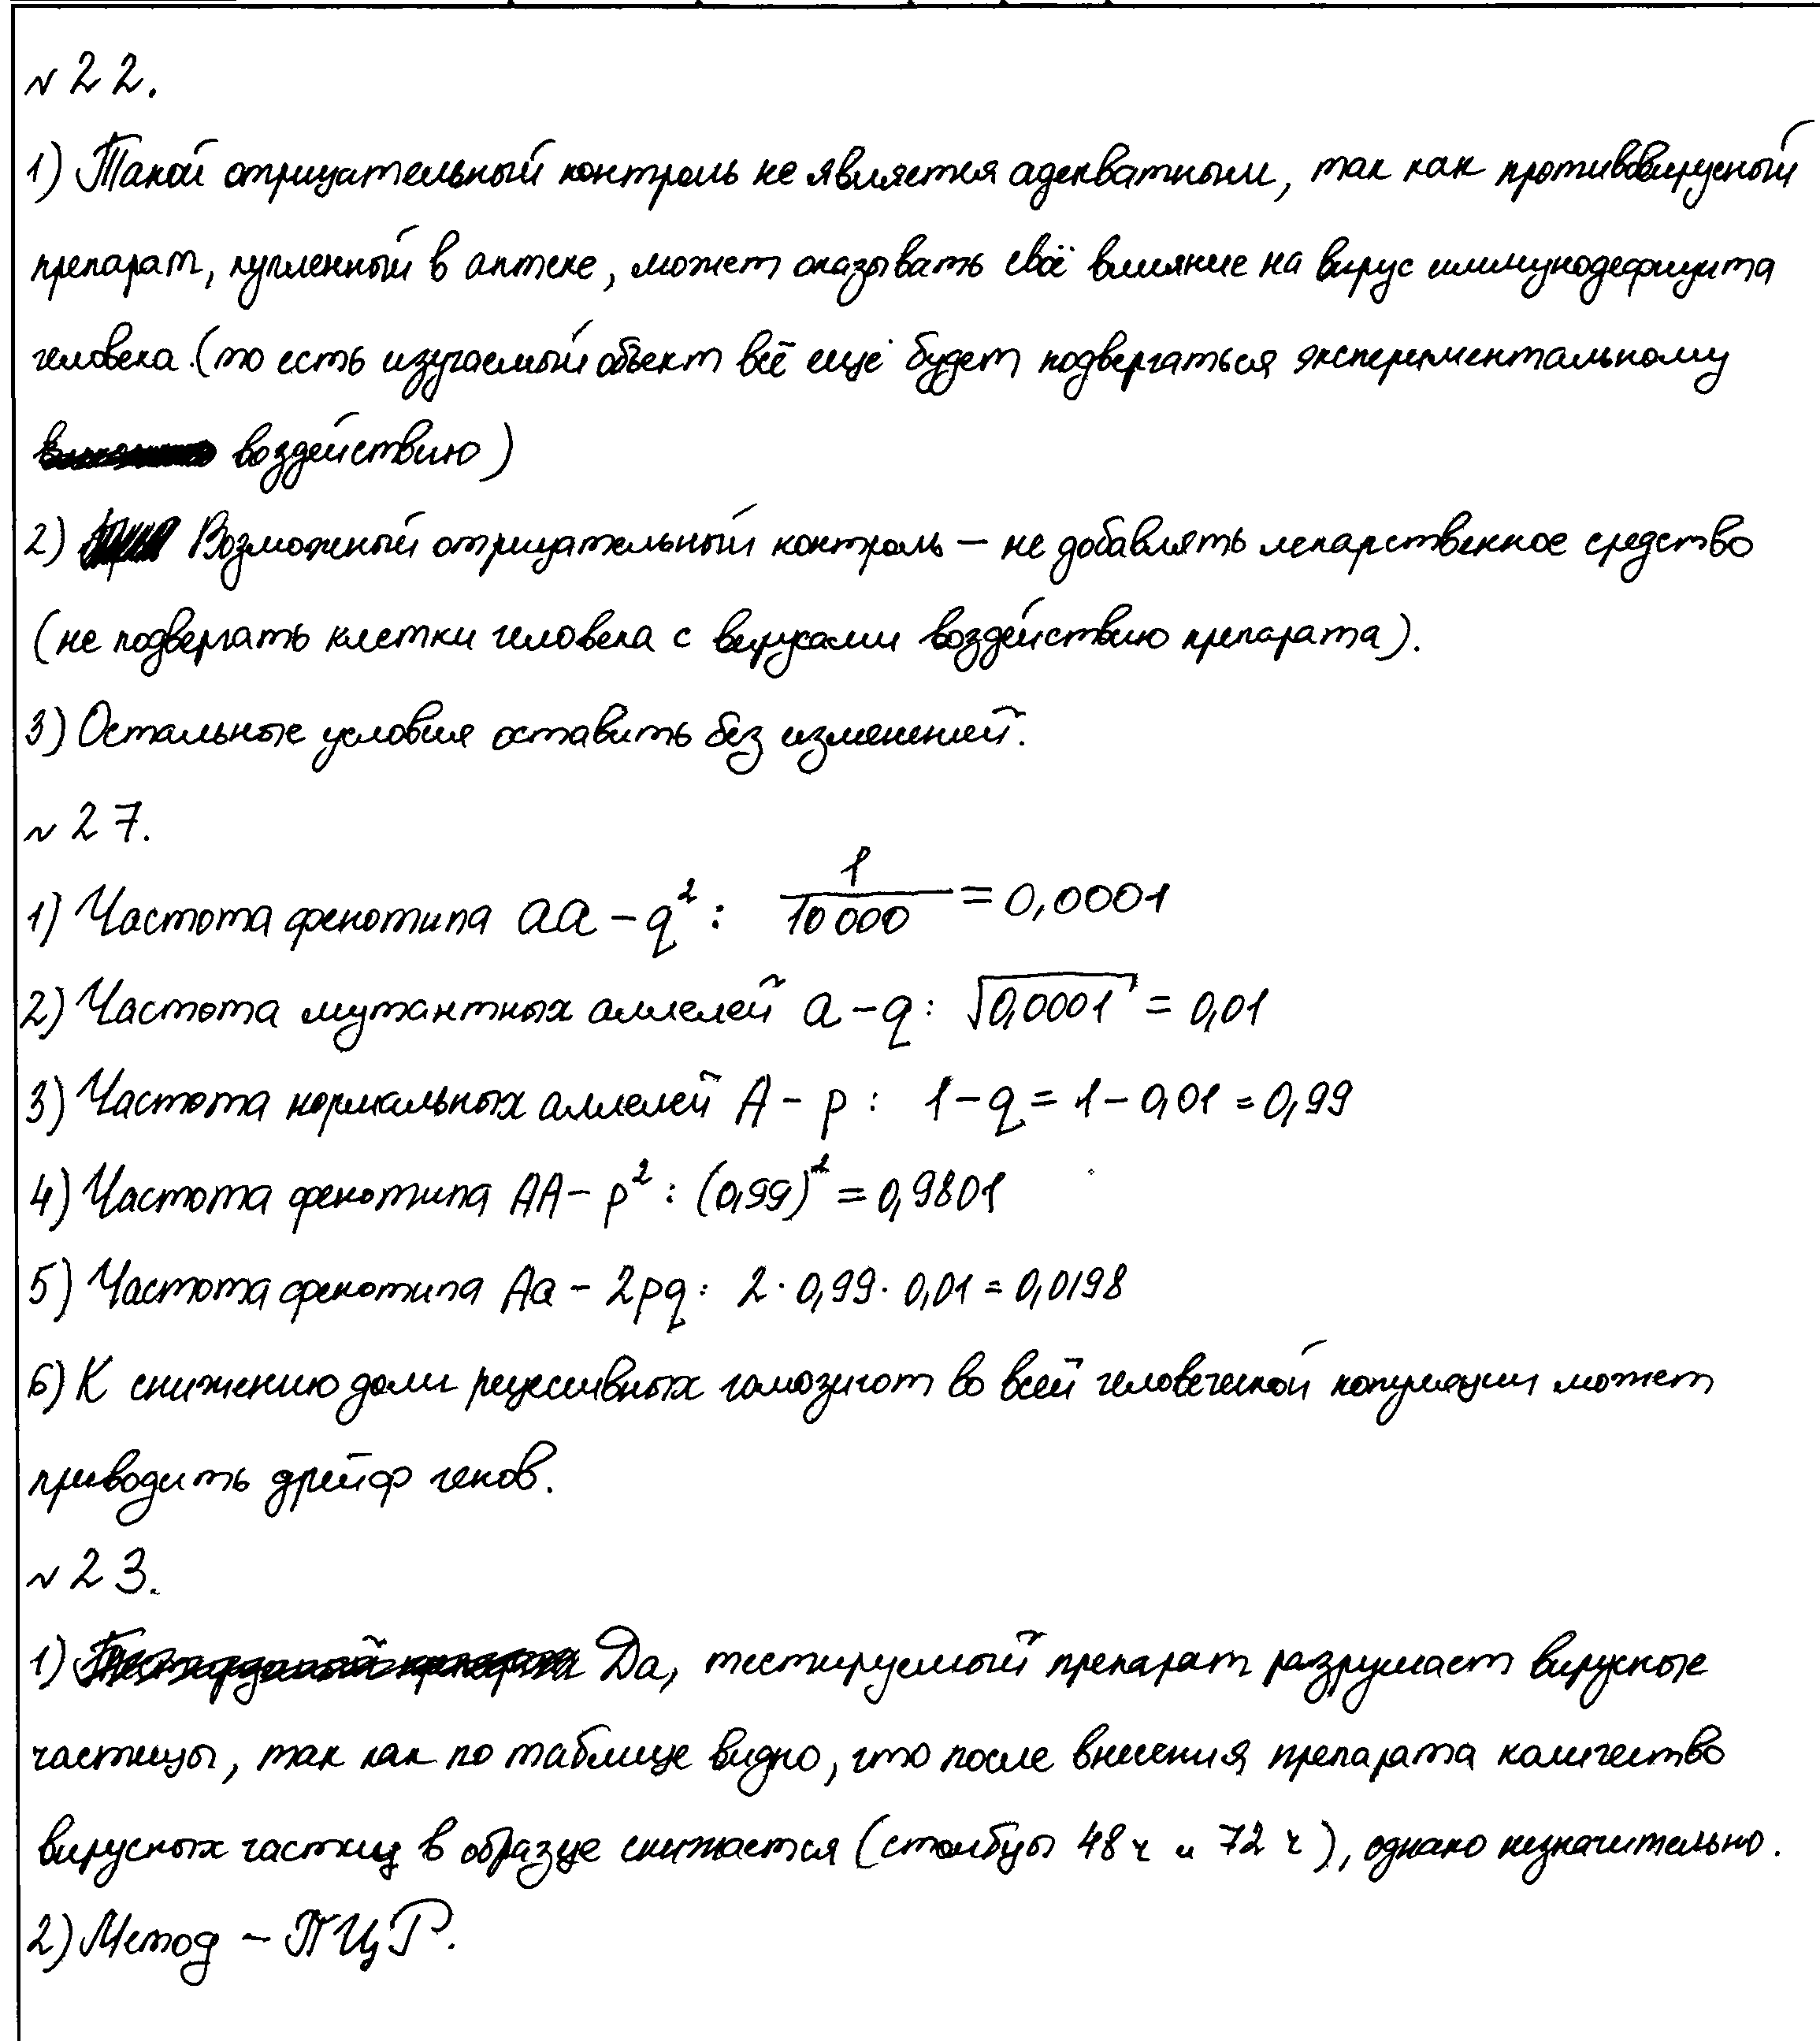 №22.
1) Такой отрицательный контроль не является адекватным, так как противовирусный
препарат, купленный в аптеке, может оказывать своё влияние на вирус иммунодефицита
человека. (то есть изучаемый объект всё ещё будет подвергаться экспериментальному
воздействию)
2) Возможный отрицательный контроль – не добавлять лекарственное средство
(не подвергать клетки человека с вирусами воздействию препарата).
3) Остальные условия оставить без изменений.
№27.
1) Частота фенотипа aa – q²: 1/10000 = 0,0001
2) Частота мутантных аллелей a – q: √0,0001 = 0,01
3) Частота нормальных аллелей A – p: 1 – q = 1 – 0,01 = 0,99
4) Частота фенотипа AA – p²: (0,99)² = 0,9801
5) Частота фенотипа Aa – 2pq: 2 · 0,99 · 0,01 = 0,0198
6) К снижению доли рецессивных гомозигот во всей человеческой популяции может
приводить дрейф генов.
№23.
1) Да, тестируемый препарат разрушает вирусные
частицы, так как по таблице видно, что после внесения препарата количество
вирусных частиц в образце снижается (столбцы 48 ч и 72 ч), однако незначительно.
2) Метод – ПЦР.